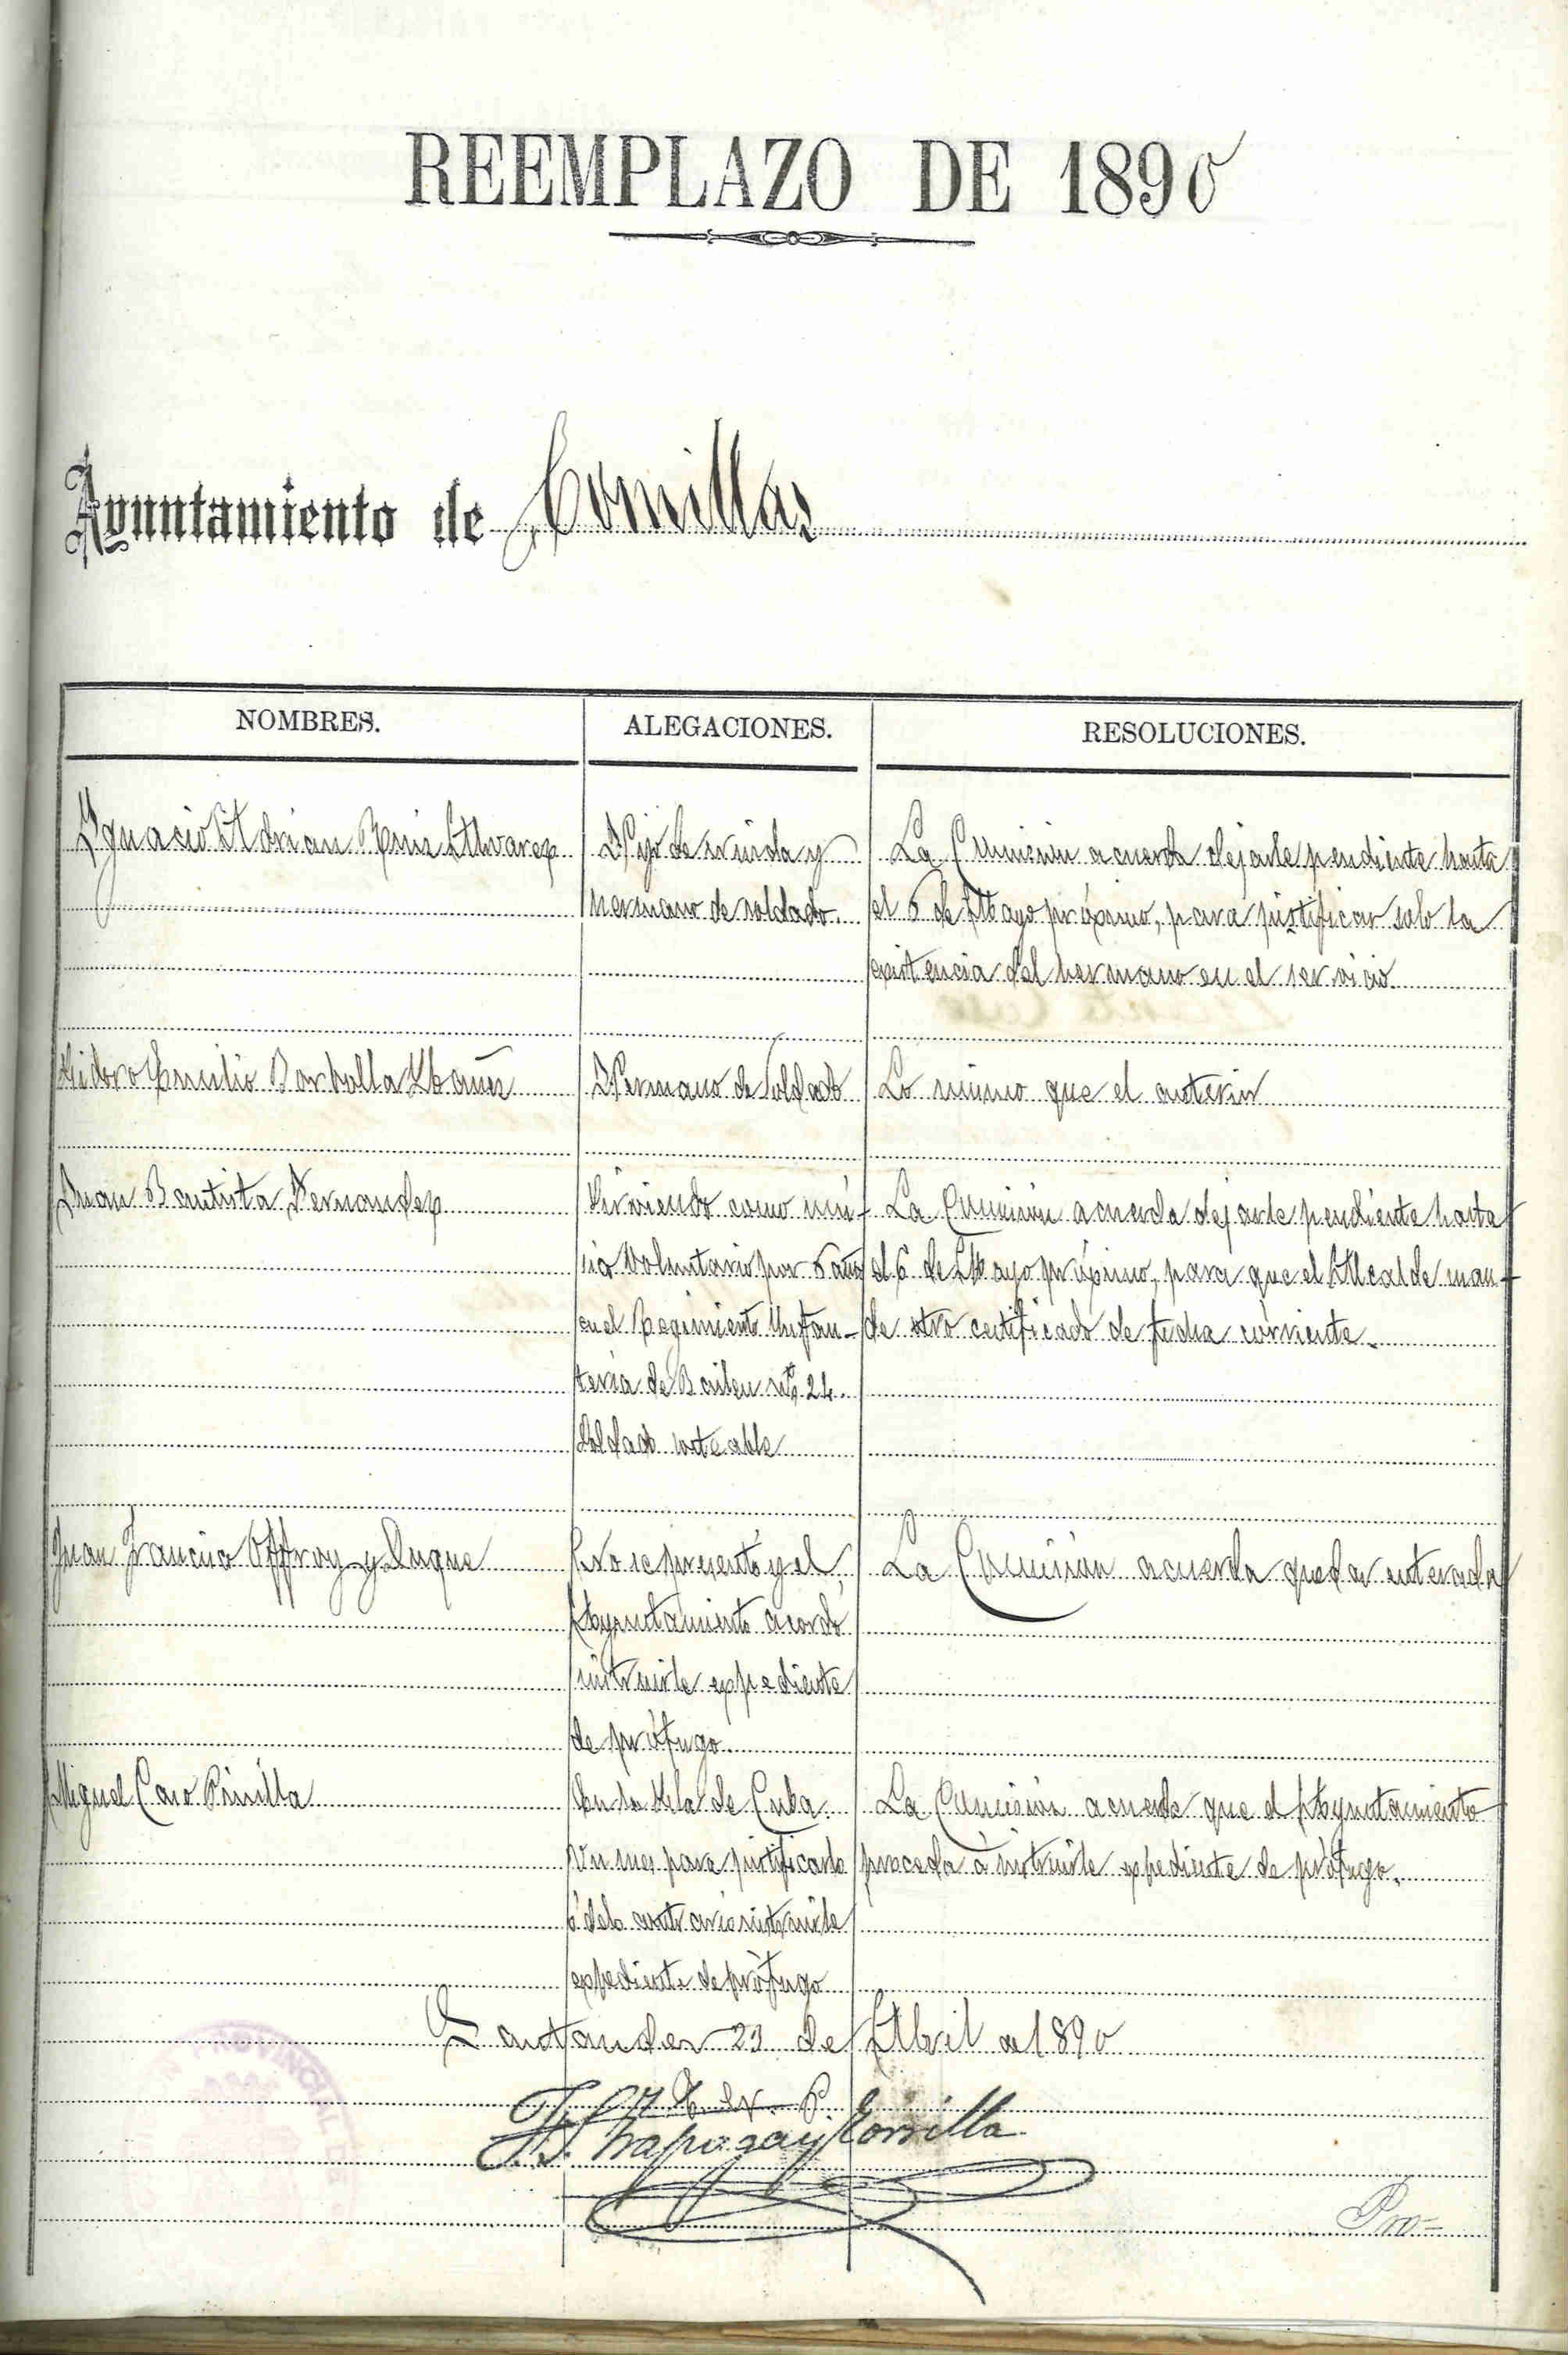 REEMPLAZO DE 1890
Ayuntamiento de Comillas
NOMBRES. ALEGACIONES. RESOLUCIONES.
Ygnacio Adrian Ruiz Alvarez Hijo de viuda y La Comisión acuerda dejarle pendiente hasta
hermano de soldado. el 6 de Mayo próximo, para justificar solo la
existencia del hermano en el servicio.
Isidoro Emilio Ybañes Hermano de Soldado Lo mismo que el anterior
Juan Bautista Fernandez Sirviendo como mú- La Comisión acuerda dejarle pendiente hasta
sico voluntario por 6 años el 6 de Mayo próximo, para que el Alcalde man-
en el Regimiento Infan- de otro certificado de fecha corriente.
tería de Bailen nº 24.
Soldado sorteable
Juan Francisco Offray y Duque No se presentó y el La Comisión acuerda quedar enterada
Ayuntamiento acordó
instruirle expediente
de prófugo.
Miguel Caso Pinilla En la Isla de Cuba. La Comisión acuerda que el Ayuntamiento
Un mes para justificarlo proceda á instruirle expediente de prófugo.
ó delo contrario instruirle
expediente de prófugo
Santander 23 de Abril de 1890
El V. P.
Zorrilla
PROVINCIAL DE
Pro-